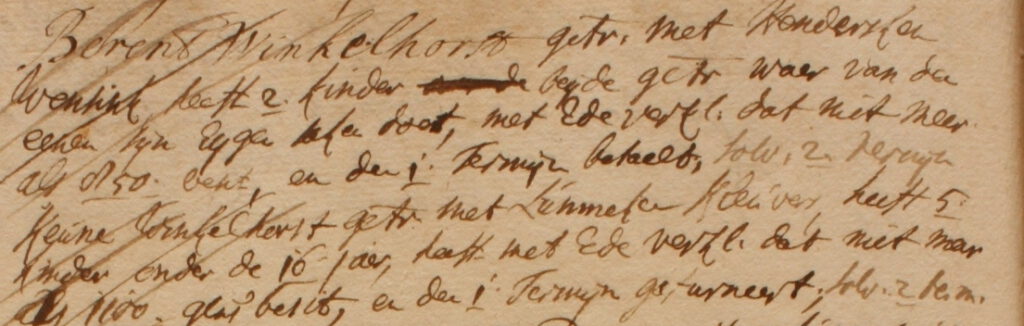 Berent Winkelhorst getr. met Hendersken
Wensink heeft 2. kinder beÿde getr waer van de
eenen sÿn Eÿgen doet, met Ede verkl. dat niet meer
als 850. besit, en den 1. Termÿn betaelt, solv. 2. Termÿn
Keune Winkelhorst getr. met Lünneken Kleuver, heeft 5.
kinder onder de 16 jaer, heeft met Ede verkl. dat niet meer
als 1100. gls besit, en den 1. Termÿn gefurneert, solv. 2 term.